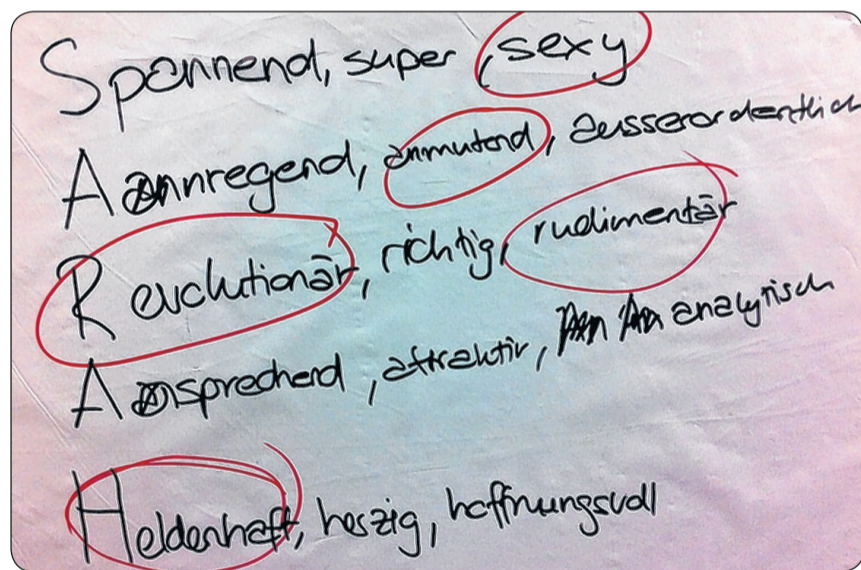 Spannend, super, sexy
Aannregend, anmutend, ausserordentlich
Revolutionär, richtig, rudimentär
Aansprechend, attraktiv, analytisch
Heldenhaft, herzig, hoffnungsvoll